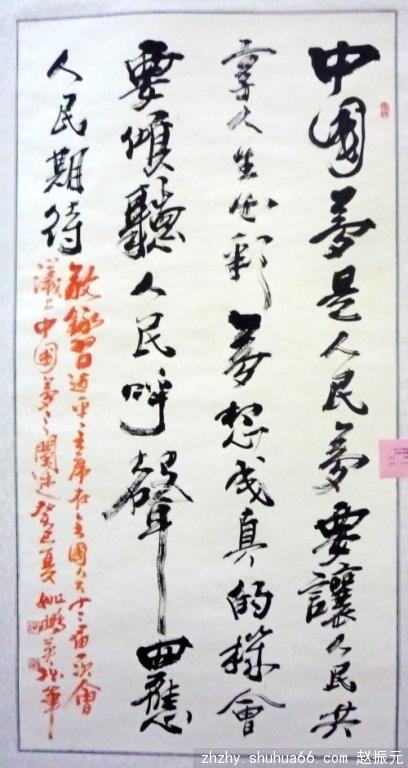 中國夢是人民夢要讓人民共
享人生出彩夢想成真的機會
要傾聽人民呼聲回應
人民期待
敬錄習近平主席在全國人大十二屆一次會
議上中國夢之闡述癸巳夏姚鵬英
zhzhy.shuhua66.com 赵振元